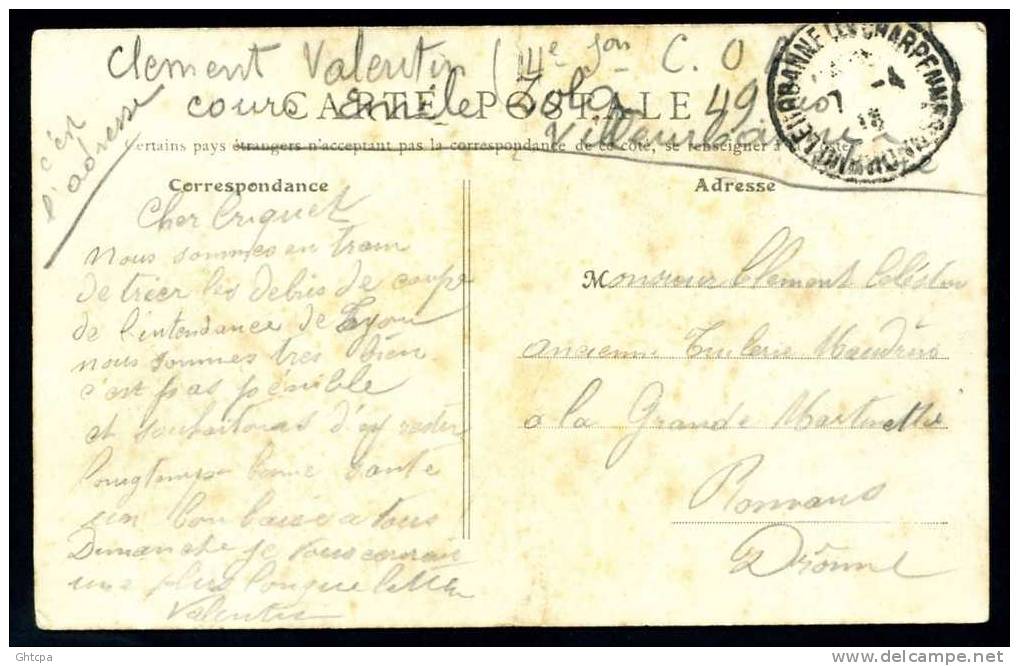 Clement Valentin (14e Son C. O. A
cours Emile Zola 49
Villeurbanne
c'est
l'adresse
CARTE POSTALE
Certains pays étrangers n'acceptant pas la correspondance de ce côté, se renseigner à la Poste
VILLEURBANNE (LES CHARPENNES) RHONE
Correspondance
Adresse
Cher Criquet
Nous sommes en train
de trier les debris de coupe
de l'intendance de Lyon
nous sommes tres bien
c'est pas pénible
et souhaitons d'y rester
longtemps bonne santé
un bon baisé a tous
Dimanche je vous
une plus longue lettre
Valentin
Monsieur Clement Celestin
ancienne Tuilerie
a la Grande Martinette
Romans
Drôme
Ghtcpa
delcampe.net